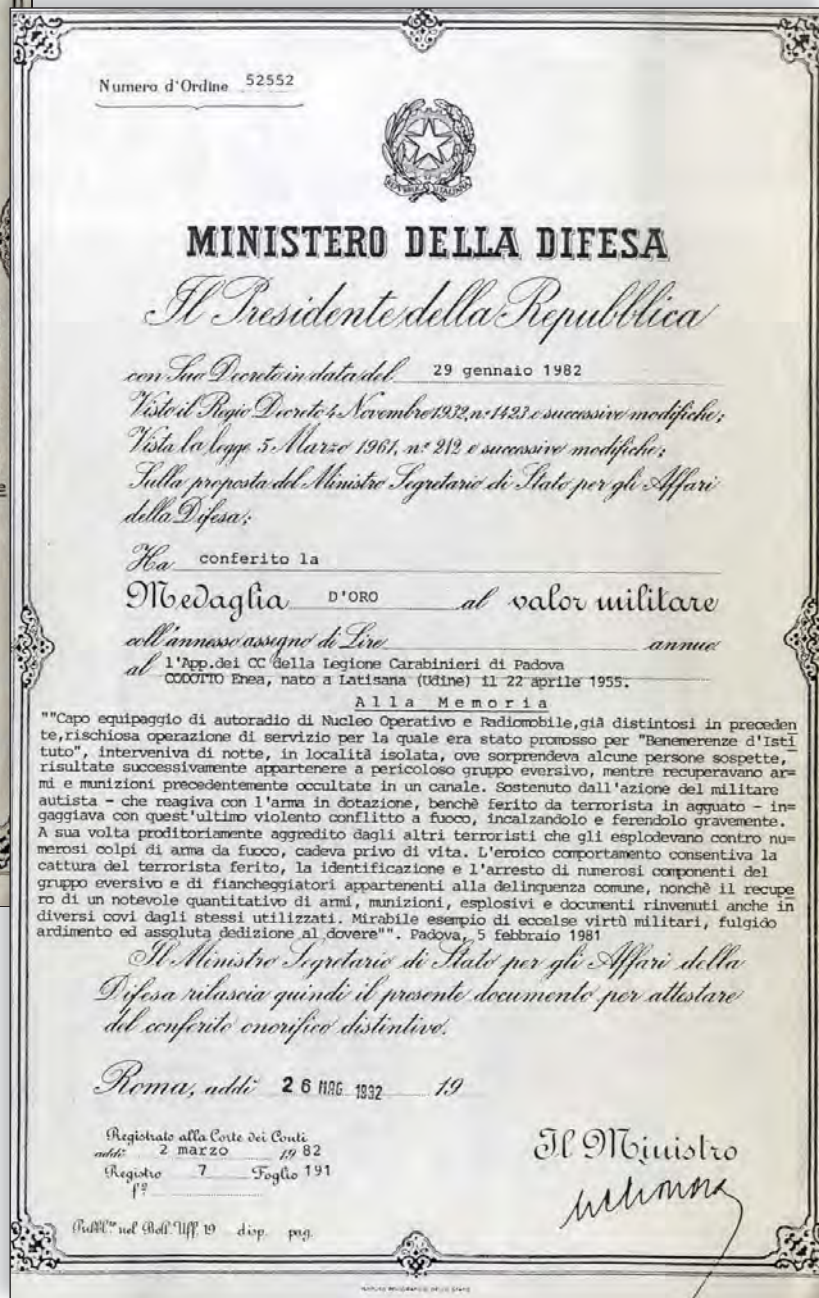 Numero d'Ordine 52552
REPVBBLICA ITALIANA
MINISTERO DELLA DIFESA
Il Presidente della Repubblica
con Suo Decreto in data del 29 gennaio 1982
Visto il Regio Decreto 4 Novembre 1932, n.º 1423 e successive modifiche;
Vista la legge 5 Marzo 1961, n.º 212 e successive modifiche;
Sulla proposta del Ministro Segretario di Stato per gli Affari
della Difesa;
Ha conferito la
Medaglia D'ORO al valor militare
coll'annesso assegno di Lire annuo
al l'App.dei CC della Legione Carabinieri di Padova
CODOTTO Enea, nato a Latisana (Udine) il 22 aprile 1955.
Alla Memoria
""Capo equipaggio di autoradio di Nucleo Operativo e Radiomobile,già distintosi in preceden
te,rischiosa operazione di servizio per la quale era stato promosso per "Benemerenze d'Isti
tuto", interveniva di notte, in località isolata, ove sorprendeva alcune persone sospette,
risultate successivamente appartenere a pericoloso gruppo eversivo, mentre recuperavano ar=
mi e munizioni precedentemente occultate in un canale. Sostenuto dall'azione del militare
autista - che reagiva con l'arma in dotazione, benchè ferito da terrorista in agguato - in=
gaggiava con quest'ultimo violento conflitto a fuoco, incalzandolo e ferendolo gravemente.
A sua volta proditoriamente aggredito dagli altri terroristi che gli esplodevano contro nu=
merosi colpi di arma da fuoco, cadeva privo di vita. L'eroico comportamento consentiva la
cattura del terrorista ferito, la identificazione e l'arresto di numerosi componenti del
gruppo eversivo e di fiancheggiatori appartenenti alla delinquenza comune, nonchè il recupe
ro di un notevole quantitativo di armi, munizioni, esplosivi e documenti rinvenuti anche in
diversi covi dagli stessi utilizzati. Mirabile esempio di eccelse virtù militari, fulgido
ardimento ed assoluta dedizione al dovere"". Padova, 5 febbraio 1981
Il Ministro Segretario di Stato per gli Affari della
Difesa rilascia quindi il presente documento per attestare
del conferito onorifico distintivo.
Roma, addì 26 MAG 1982 19
Registrato alla Corte dei Conti
addì 2 marzo 19 82
Registro 7 Foglio 191
f.º
Il Ministro
Pubbl.to nel Boll. Uff. 19 disp. pag.